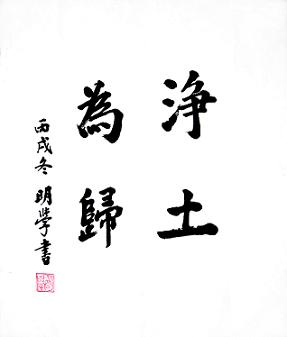 浄土
為歸
丙戌冬 明學書